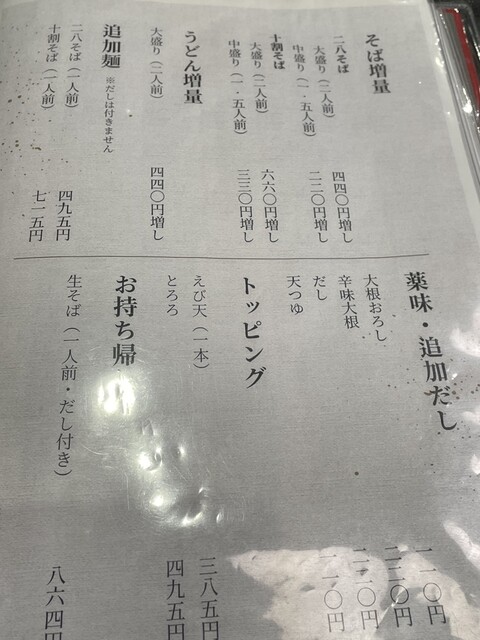 そば増量
二八そば
大盛り（二人前）
四四〇円増し
中盛り（一・五人前）
二二〇円増し
十割そば
大盛り（二人前）
六六〇円増し
中盛り（一・五人前）
三三〇円増し
うどん増量
大盛り（二人前）
四四〇円増し
追加麺 ※だしは付きません
二八そば（一人前）
四九五円
十割そば（一人前）
七一五円
薬味・追加だし
大根おろし
一一〇円
辛味大根
二二〇円
だし
二二〇円
天つゆ
一一〇円
トッピング
えび天（一本）
三八五円
とろろ
四九五円
お持ち帰
生そば（一人前・だし付き）
八六四円